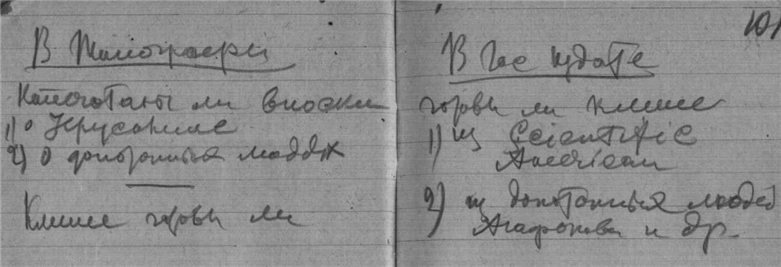 В Типографии
Напечатаны ли вноски
1) о Иерусалиме
2) о допотопных людях
Клише готовы ли
В Гос издате
готовы ли клише
1) из Scientific
American
2) из допотопных людей
Агафонова и др.